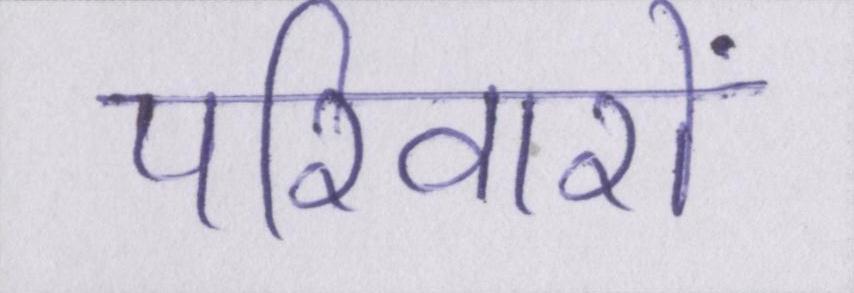 परिवारों